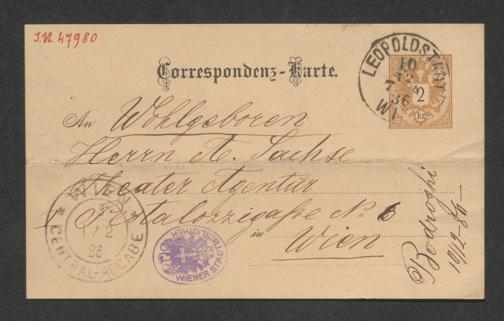 I.N. 47980
Correspondenz-Karte.
LEOPOLDSTADT
WI
2
kr.
An Wohlgeboren
Herrn A. Sachse
Theater Agentur
Pestalozzigasse No 6
in Wien
WIEN
CENTRAL-ABGABE
WIENER STADTBIBLIOTHEK
Bodroghi
10/12 86